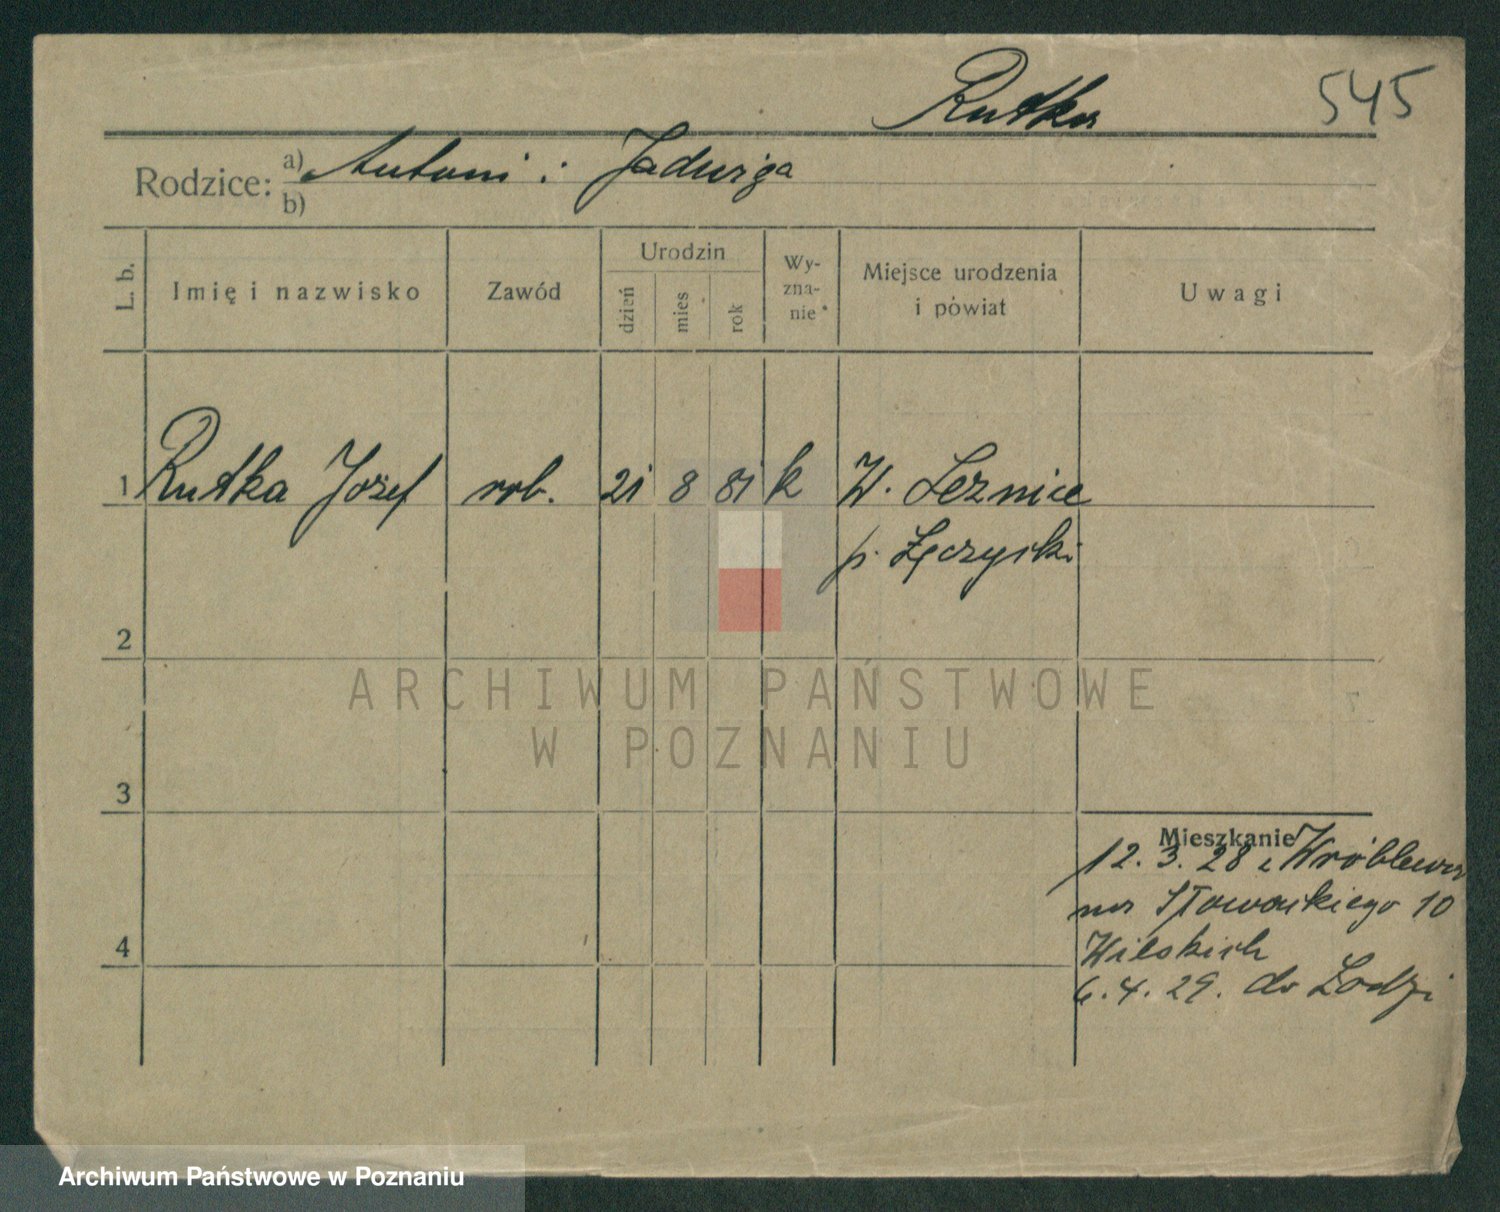 Rutka 545
Rodzice: a) Antoni i Jadwiga
b)
L. b. Imię i nazwisko Zawód Urodzin dzień mies rok Wy-zna-nie Miejsce urodzenia i powiat Uwagi
1 Rutka Józef rob. 21 8 81 k W. Leznice
p. Łęczycki
2
ARCHIWUM PAŃSTWOWE
W POZNANIU
3
Mieszkanie
12. 3. 28 z Wróblewa
na Słowackiego 10
6. 4. 29. do Łodzi
4
Archiwum Państwowe w Poznaniu